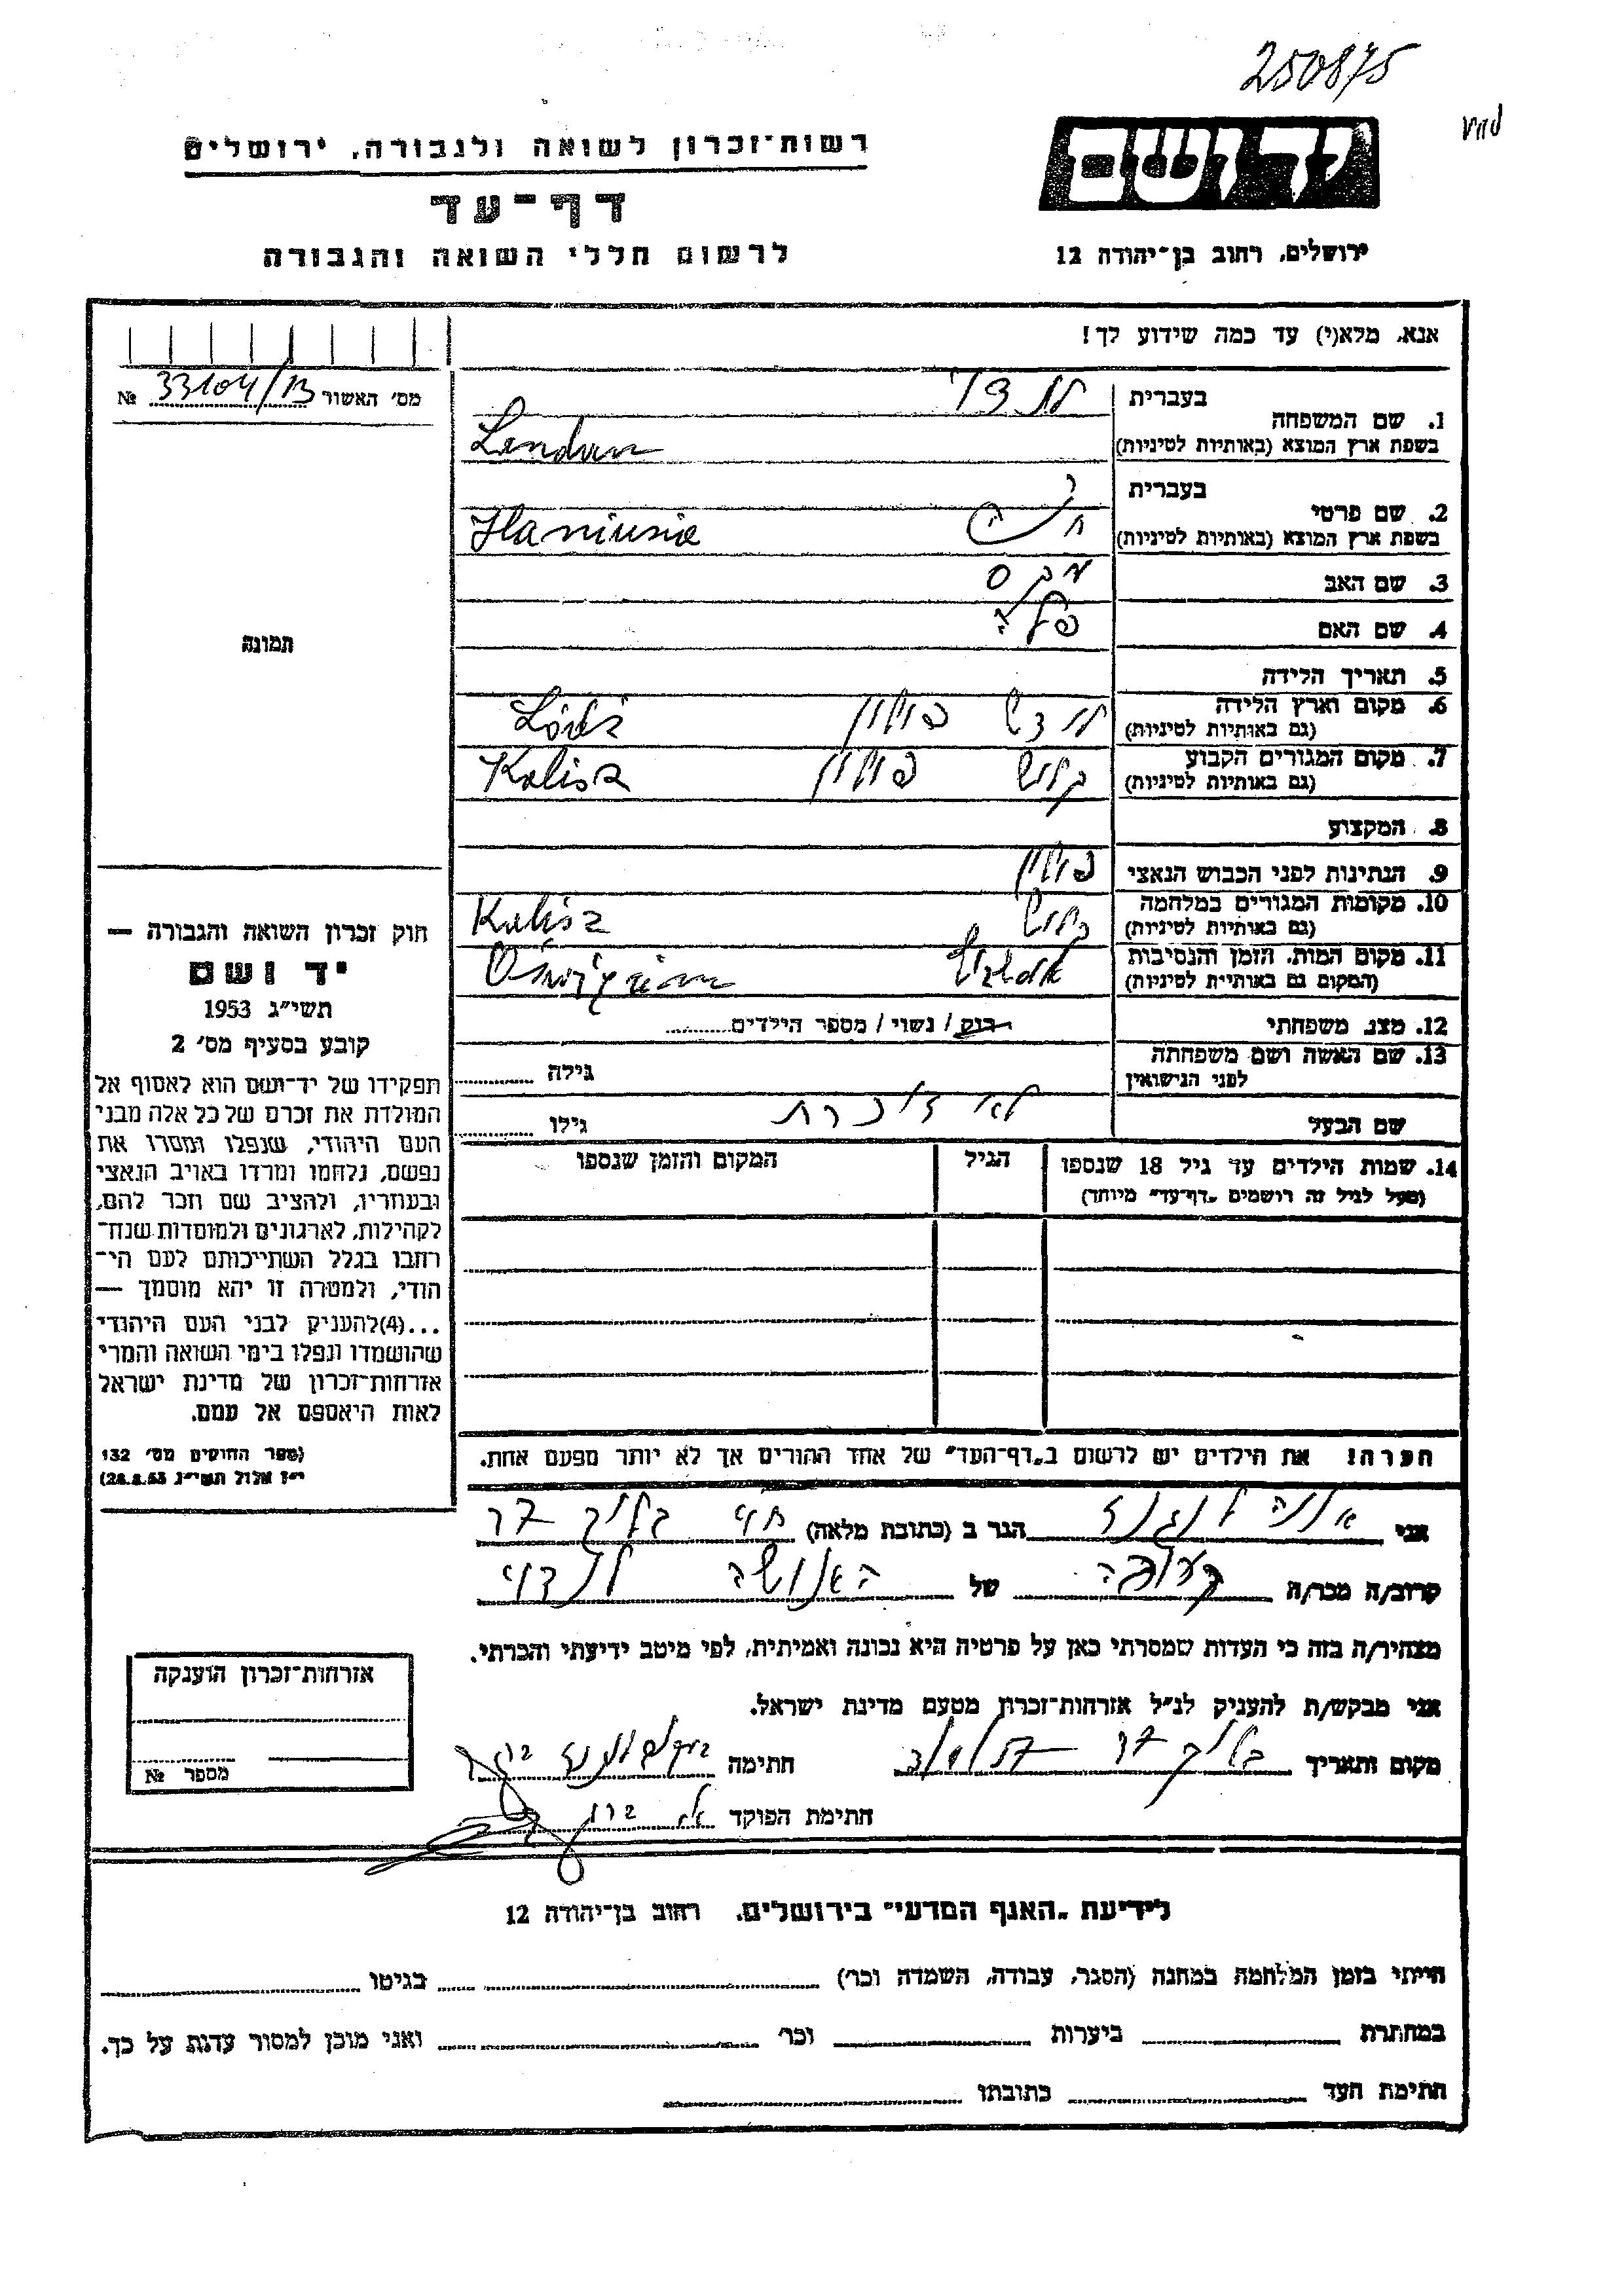 250875
יד ושם
רשות-זכרון לשואה ולגבורה, ירושלים
דף-עד
לרשום חללי השואה והגבורה
ירושלים, רחוב בן-יהודה 12
אנא, מלא(י) עד כמה שידוע לך!
מס' האשור 33104/13 №
1. שם המשפחה
בעברית
בשפת ארץ המוצא (באותיות לטיניות)
2. שם פרטי
בעברית
בשפת ארץ המוצא (באותיות לטיניות) Haniusia
3. שם האב
4. שם האם
5. תאריך הלידה
6. מקום וארץ הלידה
(גם באותיות לטיניות) פולין Łódź
7. מקום המגורים הקבוע
(גם באותיות לטיניות) קליש פולין Kalisz
8. המקצוע
9. הנתינות לפני הכבוש הנאצי פולין
10. מקומות המגורים במלחמה
(גם באותיות לטיניות) קליש Kalisz
11. מקום המות, הזמן והנסיבות
(המקום גם באותיות לטיניות)
12. מצב משפחתי רוק / נשוי / מספר הילדים
13. שם האשה ושם משפחתה
לפני הנישואין גילה
שם הבעל לא זוכרת גילו
14. שמות הילדים עד גיל 18 שנספו הגיל המקום והזמן שנספו
(מעל לגיל זה רושמים „דף-עד" מיוחד)
תמונה
חוק זכרון השואה והגבורה —
יד ושם
תשי"ג 1953
קובע בסעיף מס' 2
תפקידו של יד-ושם הוא לאסוף אל
המולדת את זכרם של כל אלה מבני
העם היהודי, שנפלו ומסרו את
נפשם, נלחמו ומרדו באויב הנאצי
ובעוזריו, ולהציב שם וזכר להם,
לקהילות, לארגונים ולמוסדות שנח-
רחבו בגלל השתייכותם לעם הי-
הודי, ולמטרה זו יהא מוסמך —
...(4)להעניק לבני העם היהודי
שהושמדו ונפלו בימי השואה והמרי
אזרחות-זכרון של מדינת ישראל
לאות היאספם אל עמם.
(ספר החוקים מס' 132
י"ז אלול תשי"ג 28.8.53)
הערה! את הילדים יש לרשום ב„דף-העד" של אחד ההורים אך לא יותר מפעם אחת.
אני הגר ב (כתובת מלאה)
קרוב/ה מכר/ה של האנושה לנדוי
מצהיר/ה בזה כי העדות שמסרתי כאן על פרטיה היא נכונה ואמיתית, לפי מיטב ידיעתי והכרתי.
אני מבקש/ת להעניק לנ"ל אזרחות-זכרון מטעם מדינת ישראל.
מקום ותאריך חתימה
חתימת הפוקד
אזרחות-זכרון הוענקה
מספר №
לידיעת „האגף המדעי" בירושלים, רחוב בן-יהודה 12
הייתי בזמן המלחמה במחנה (הסגר, עבודה, השמדה וכו') בגיטו
במחתרת ביערות וכו' ואני מוכן למסור עדות על כך.
חתימת העד כתובתו